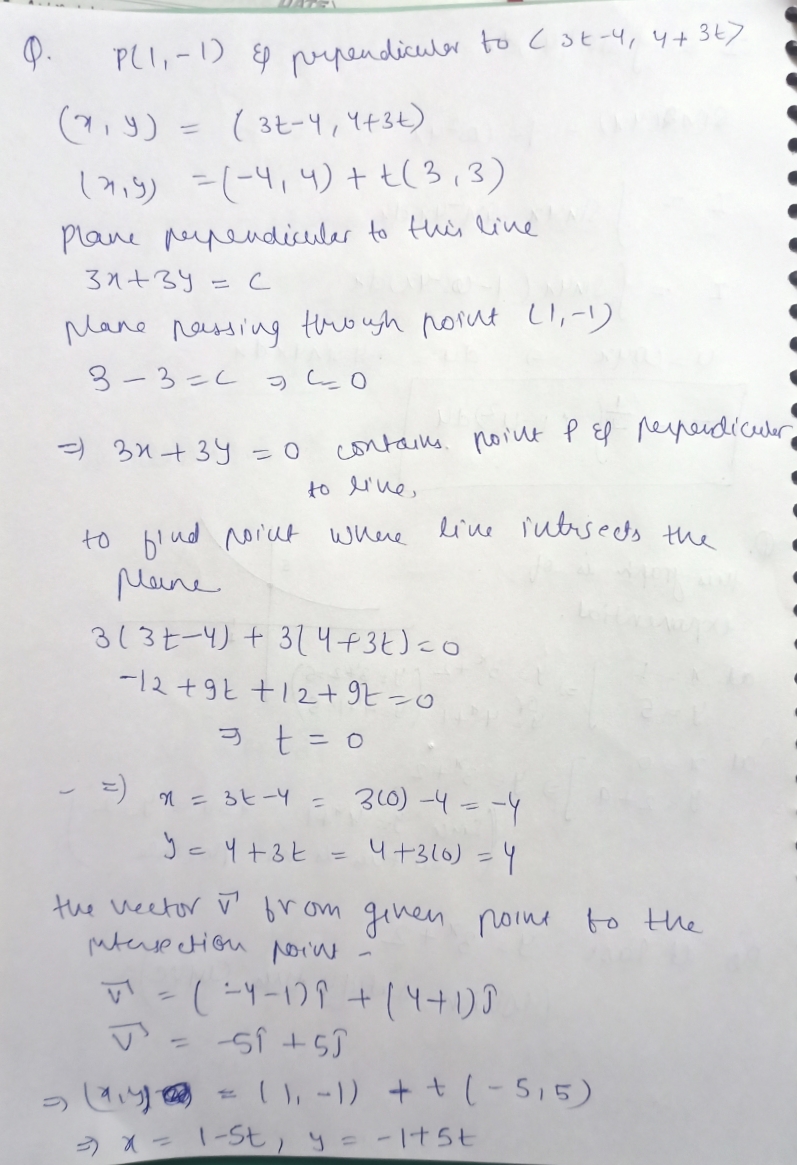 DATE
Q. P(1,-1) & perpendicular to < 3t-4, 4+3t>
(x, y) = (3t-4, 4+3t)
(x,y) = (-4,4) + t(3,3)
plane perpendicular to this line
3x+3y = c
plane passing through point (1,-1)
3-3=c ⇒ c=0
⇒ 3x+3y=0 contains point P & perpendicular
to line,
to find point where line intrsects the
plane
3(3t-4) + 3(4+3t)=0
-12+9t+12+9t=0
⇒ t=0
- ⇒) x = 3t-4 = 3(0)-4=-4
y = 4+3t = 4+3(0)=4
the vector v⃗ from given point to the
intersection point -
v⃗ = (-4-1)î + (4+1)ĵ
v⃗ = -5î+5ĵ
⇒ (x,y) = (1,-1) + t(-5,5)
⇒ x = 1-5t, y = -1+5t